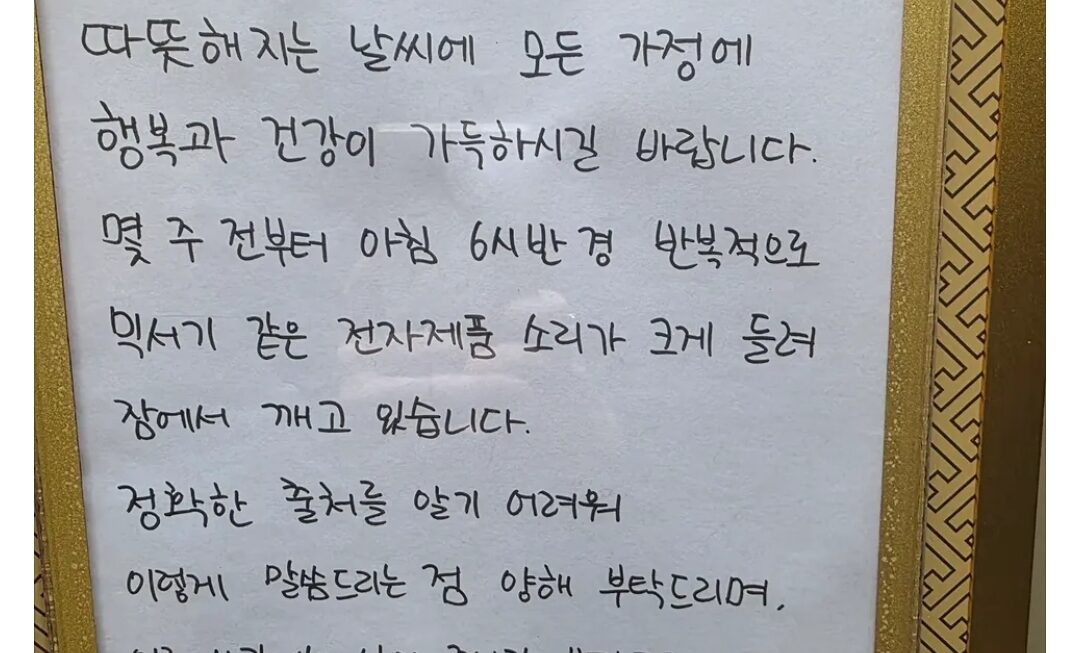 따뜻해지는 날씨에 모든 가정에
행복과 건강이 가득하시길 바랍니다.
몇 주 전부터 아침 6시반 경 반복적으로
믹서기 같은 전자제품 소리가 크게 들려
잠에서 깨고 있습니다.
정확한 출처를 알기 어려워
이렇게 말씀드리는 점 양해 부탁드리며,